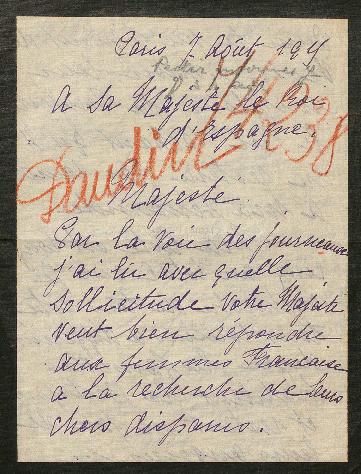 Paris 7 Août 191
A Sa Majesté le Roi
d'Espagne.
Majesté
Par la voie des journeaux
j'ai lu avec quelle
sollicitude votre Majesté
veut bien répondre
aux femmes Francaise
à la recherche de leurs
chers disparus.